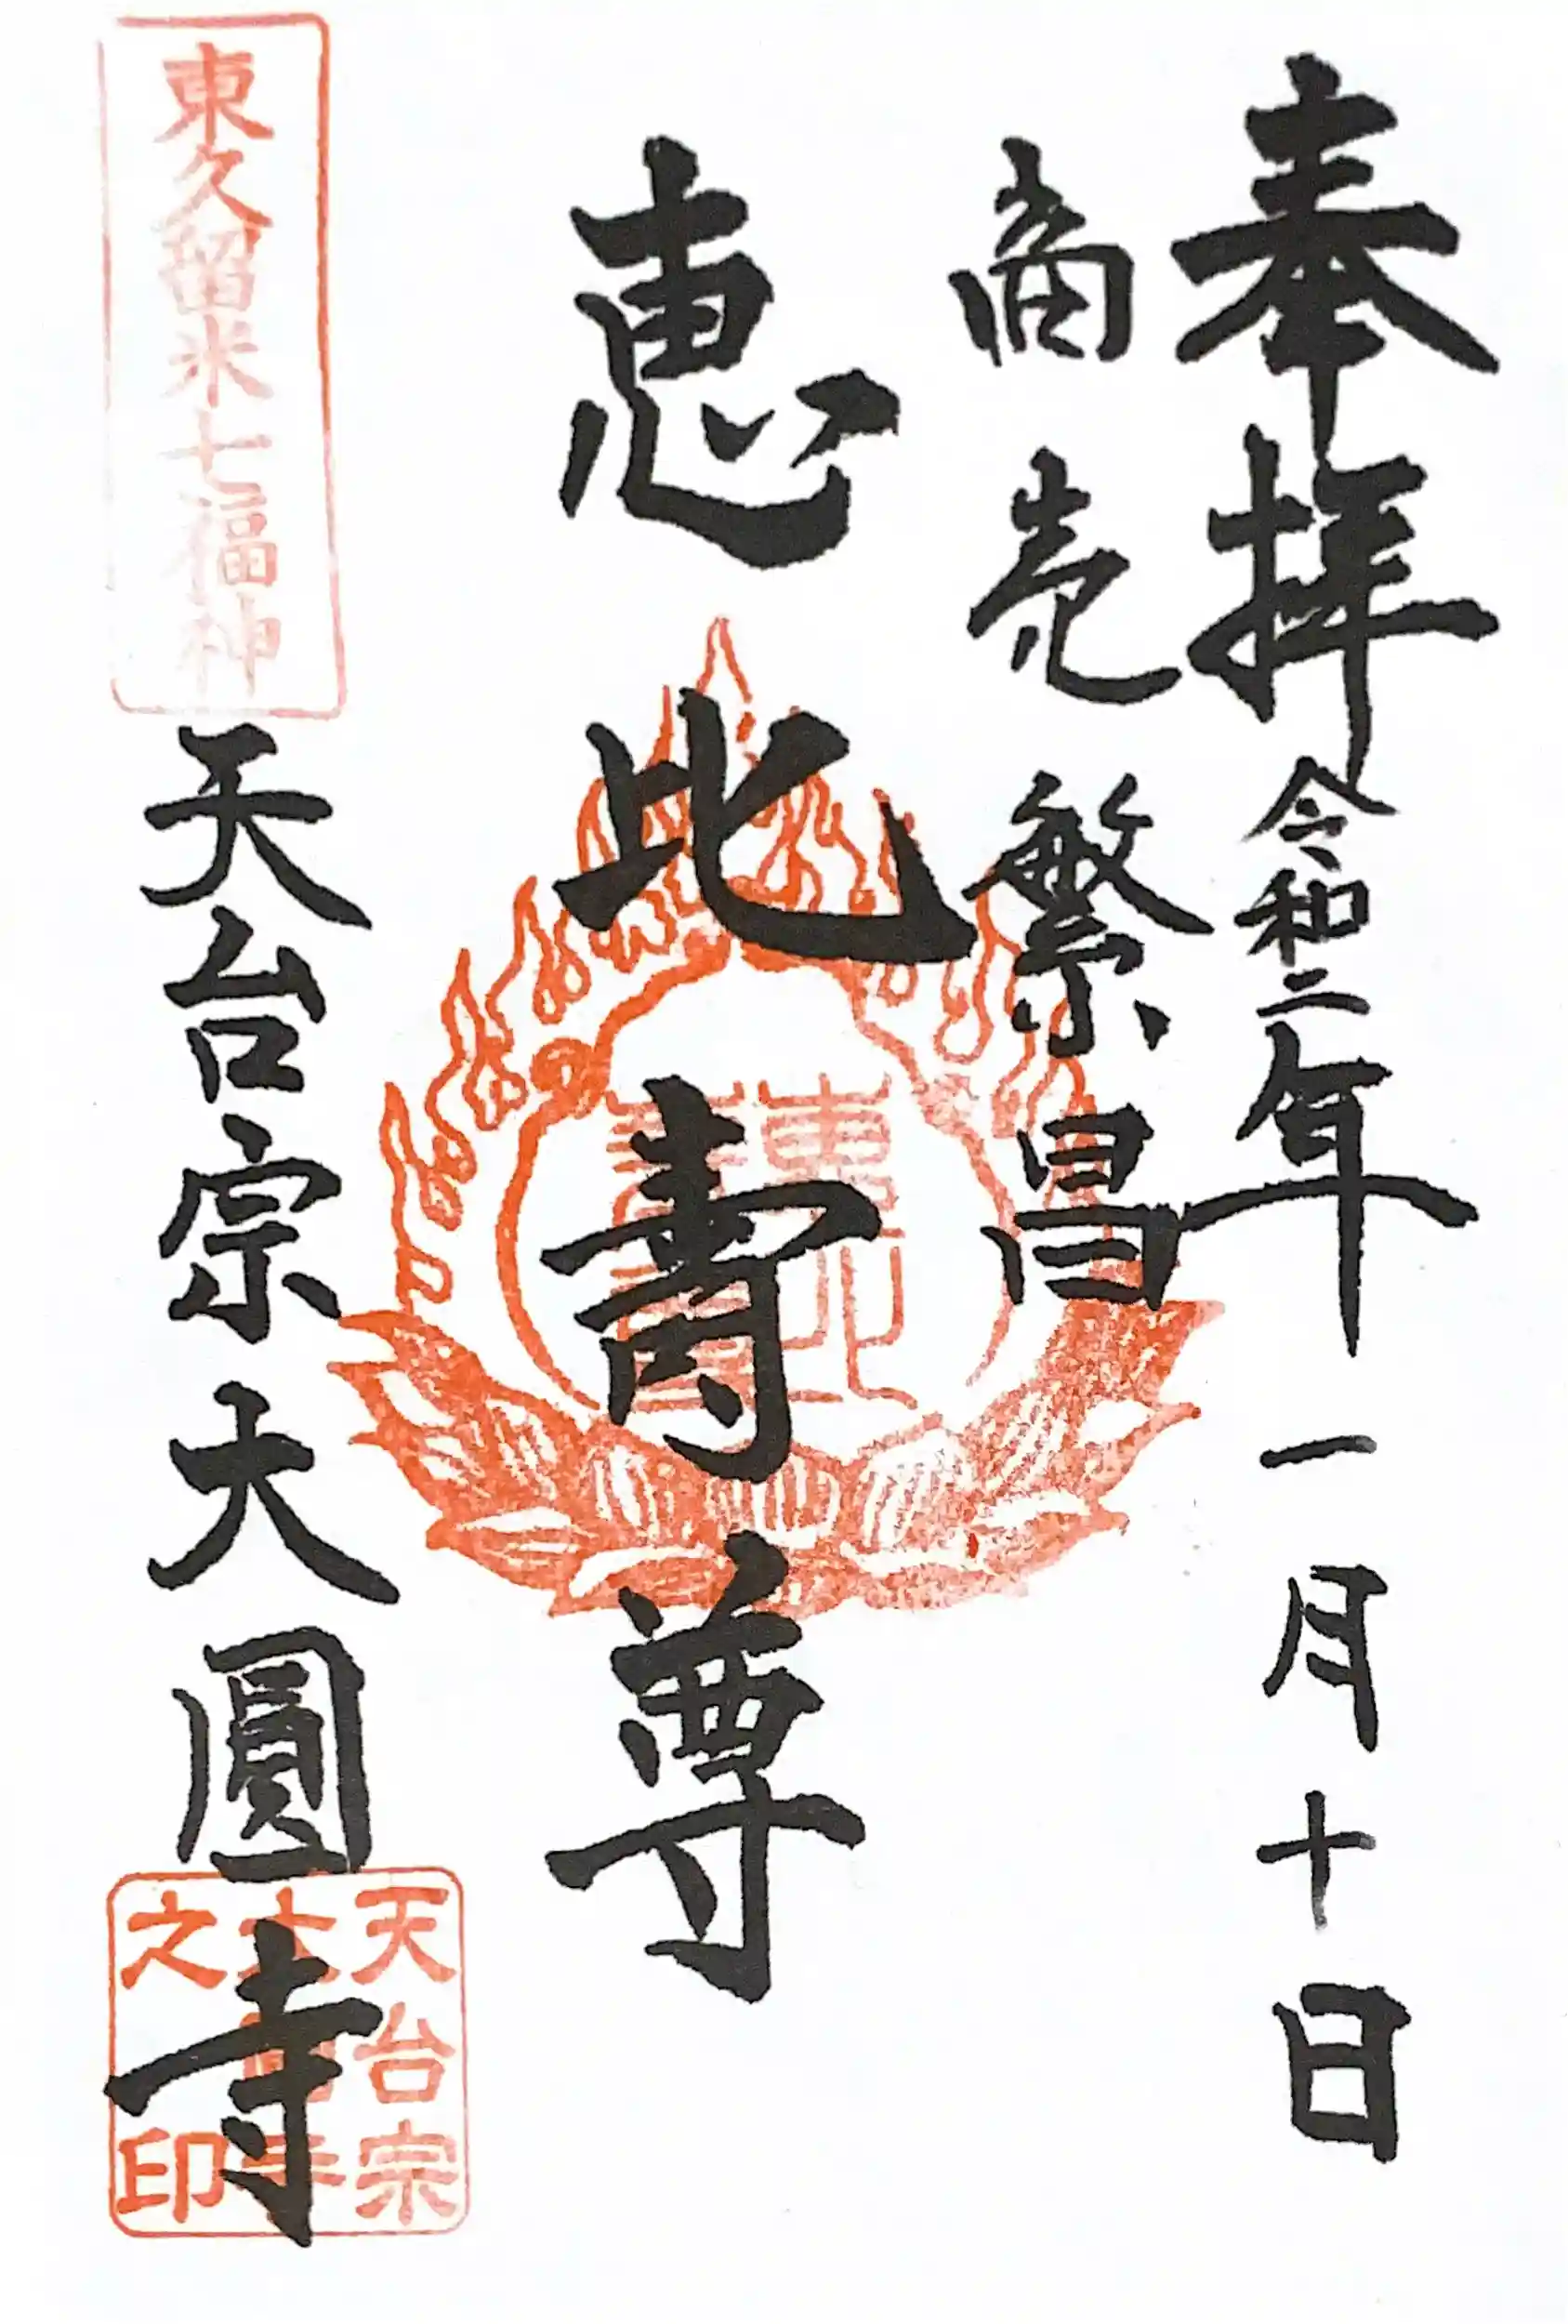 奉拝 令和二年 一月十日
商売繁昌
恵比寿尊
東久留米七福神
天台宗 大圓寺
天台宗
大圓寺
之印